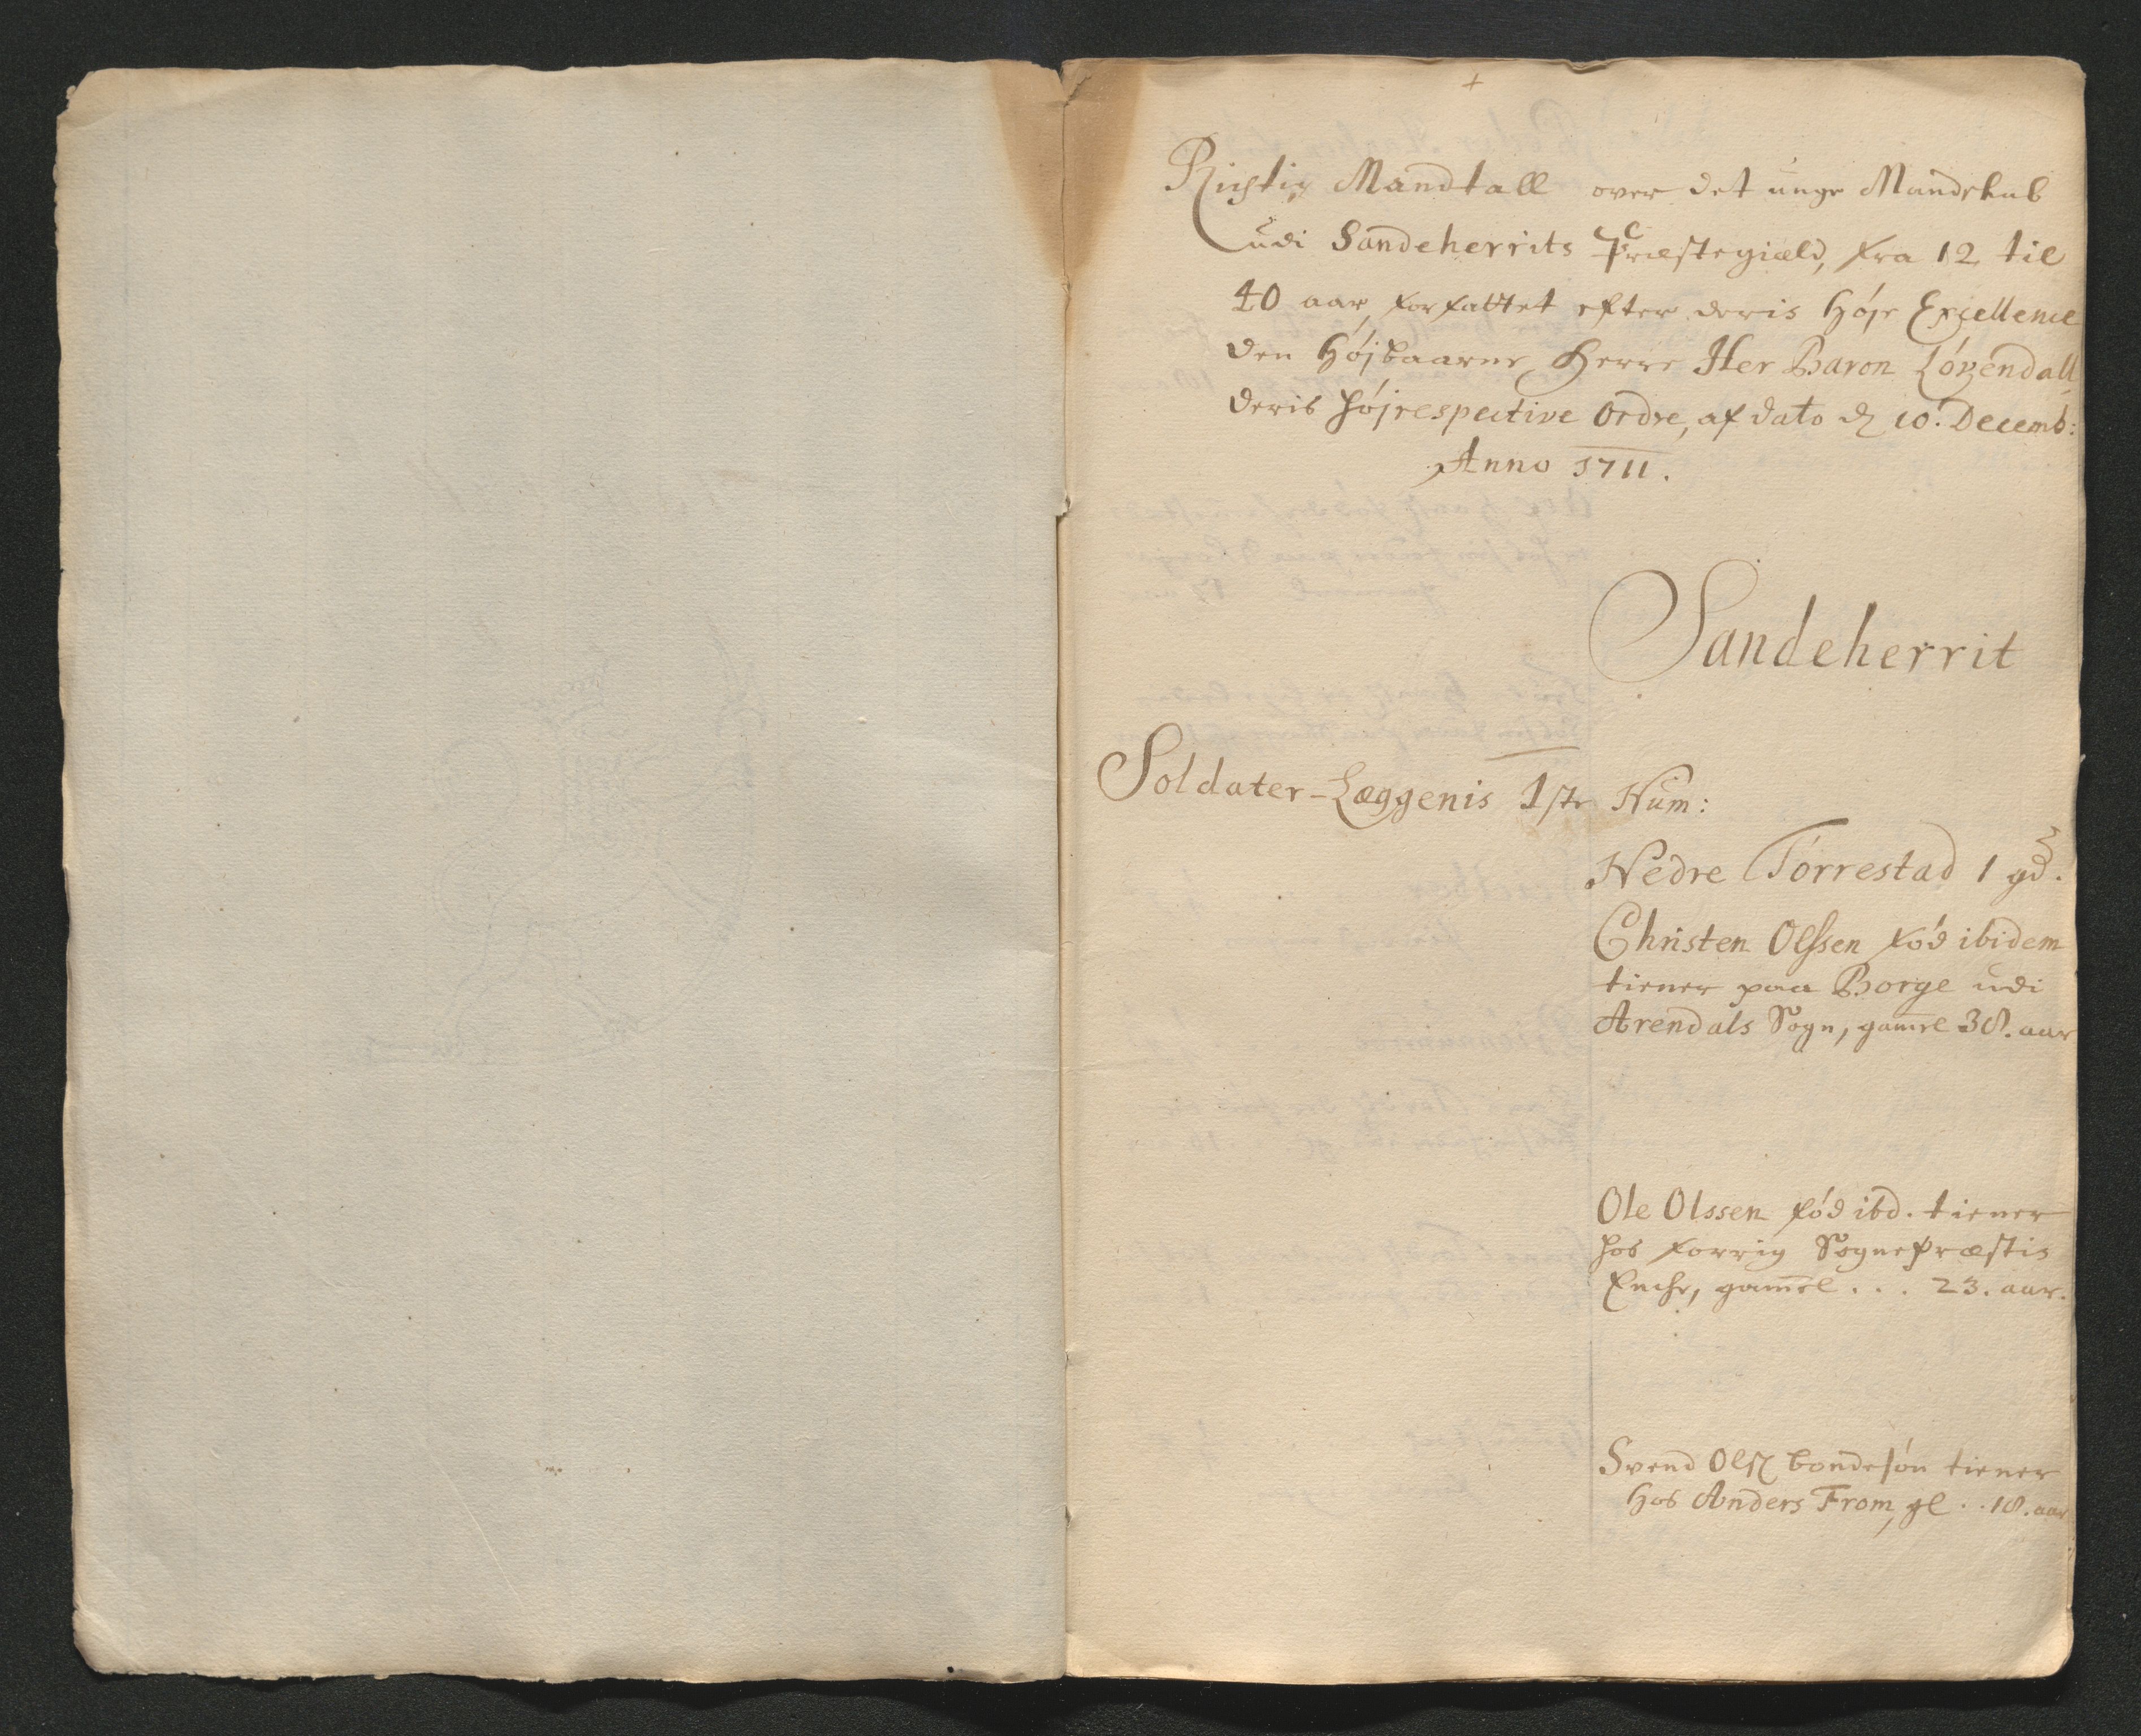 Rigtig Mandtall over det unge Mandskab
udi Sandeherrits Præstegiæld, fra 12 til
40 aar, forfattet efter deris Høje Excellence
den Højbaarne Herre Her Baron Løvendall
deris højrespective Ordre, af dato d 10. Decemb:
Anno 1711.
Sandeherrit
Soldater-Læggenis 1ste Num:
Nedre Torrestad 1 gd.
Christen Olssen fød ibidem
tiener paa Borge udi
Arendals Sogn, gamel 38. aar
Ole Olssen fød ibd. tiener
hos forrig Sognepræstis
Enche, gamel . . . 23. aar.
Svend Ols bondesøn tiener
hos Anders From, gl . . 18. aar